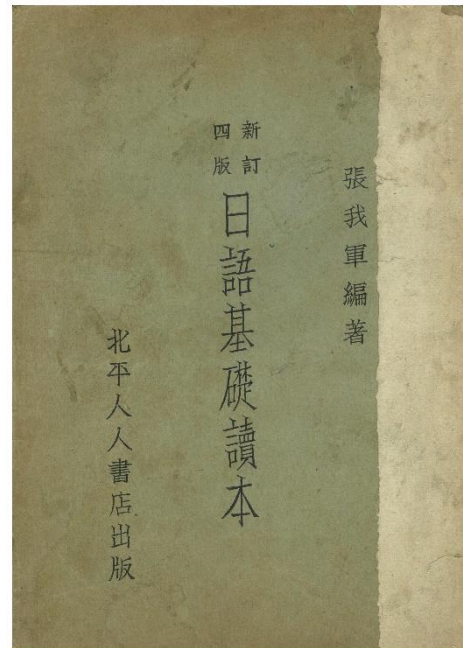 張我軍編著
新訂
四版
日語基礎讀本
北平人人書店出版